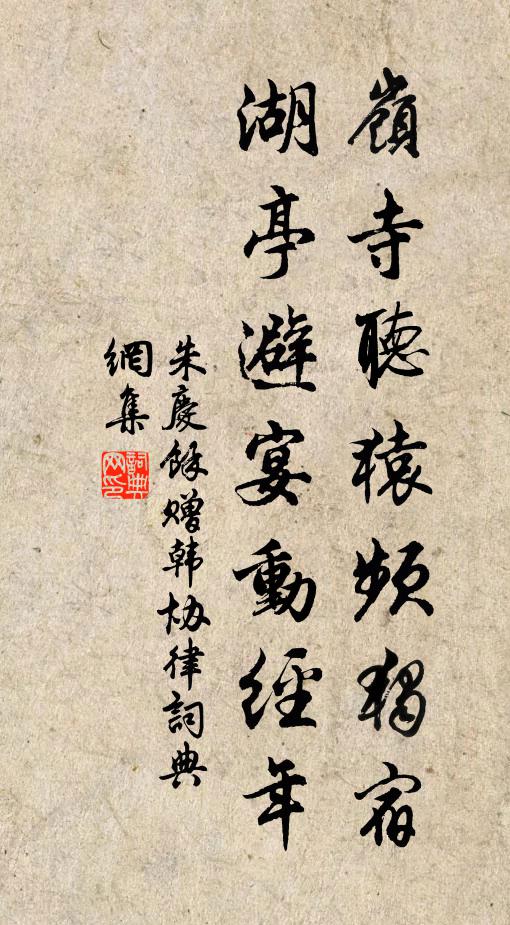 嶺寺聽猿頻獨宿
湖亭避宴動經年
朱慶餘赠韩协律詞典
網集
詞典網印